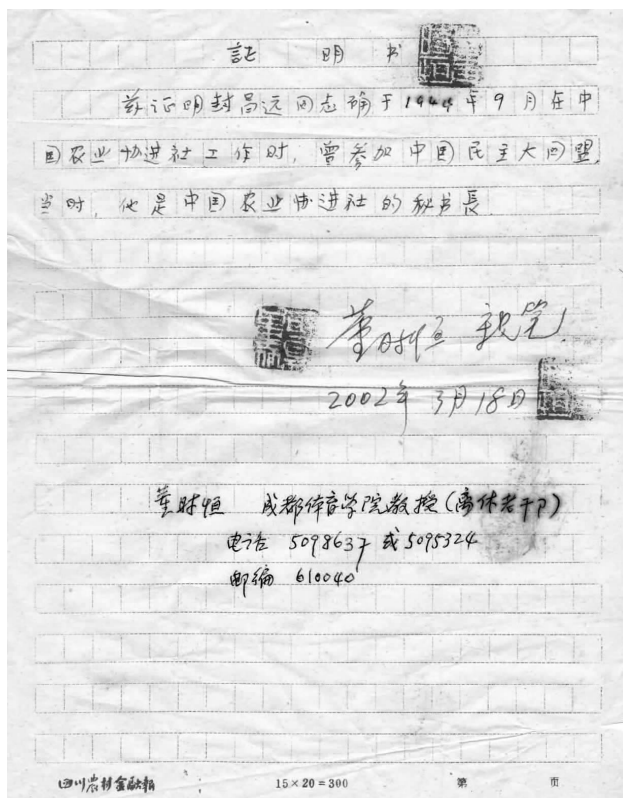 証 明 书
兹证明封昌远同志确于1944年9月在中
国农业协进社工作时，曾参加中国民主大同盟，
当时，他是中国农业协进社的秘书長
董时恒 親笔
2002年 3月18日
董时恒 成都体育学院教授(离休老干卩)
电话 5098637 或5095324
邮编 610040
四川农村金融報 15×20=300 第 页